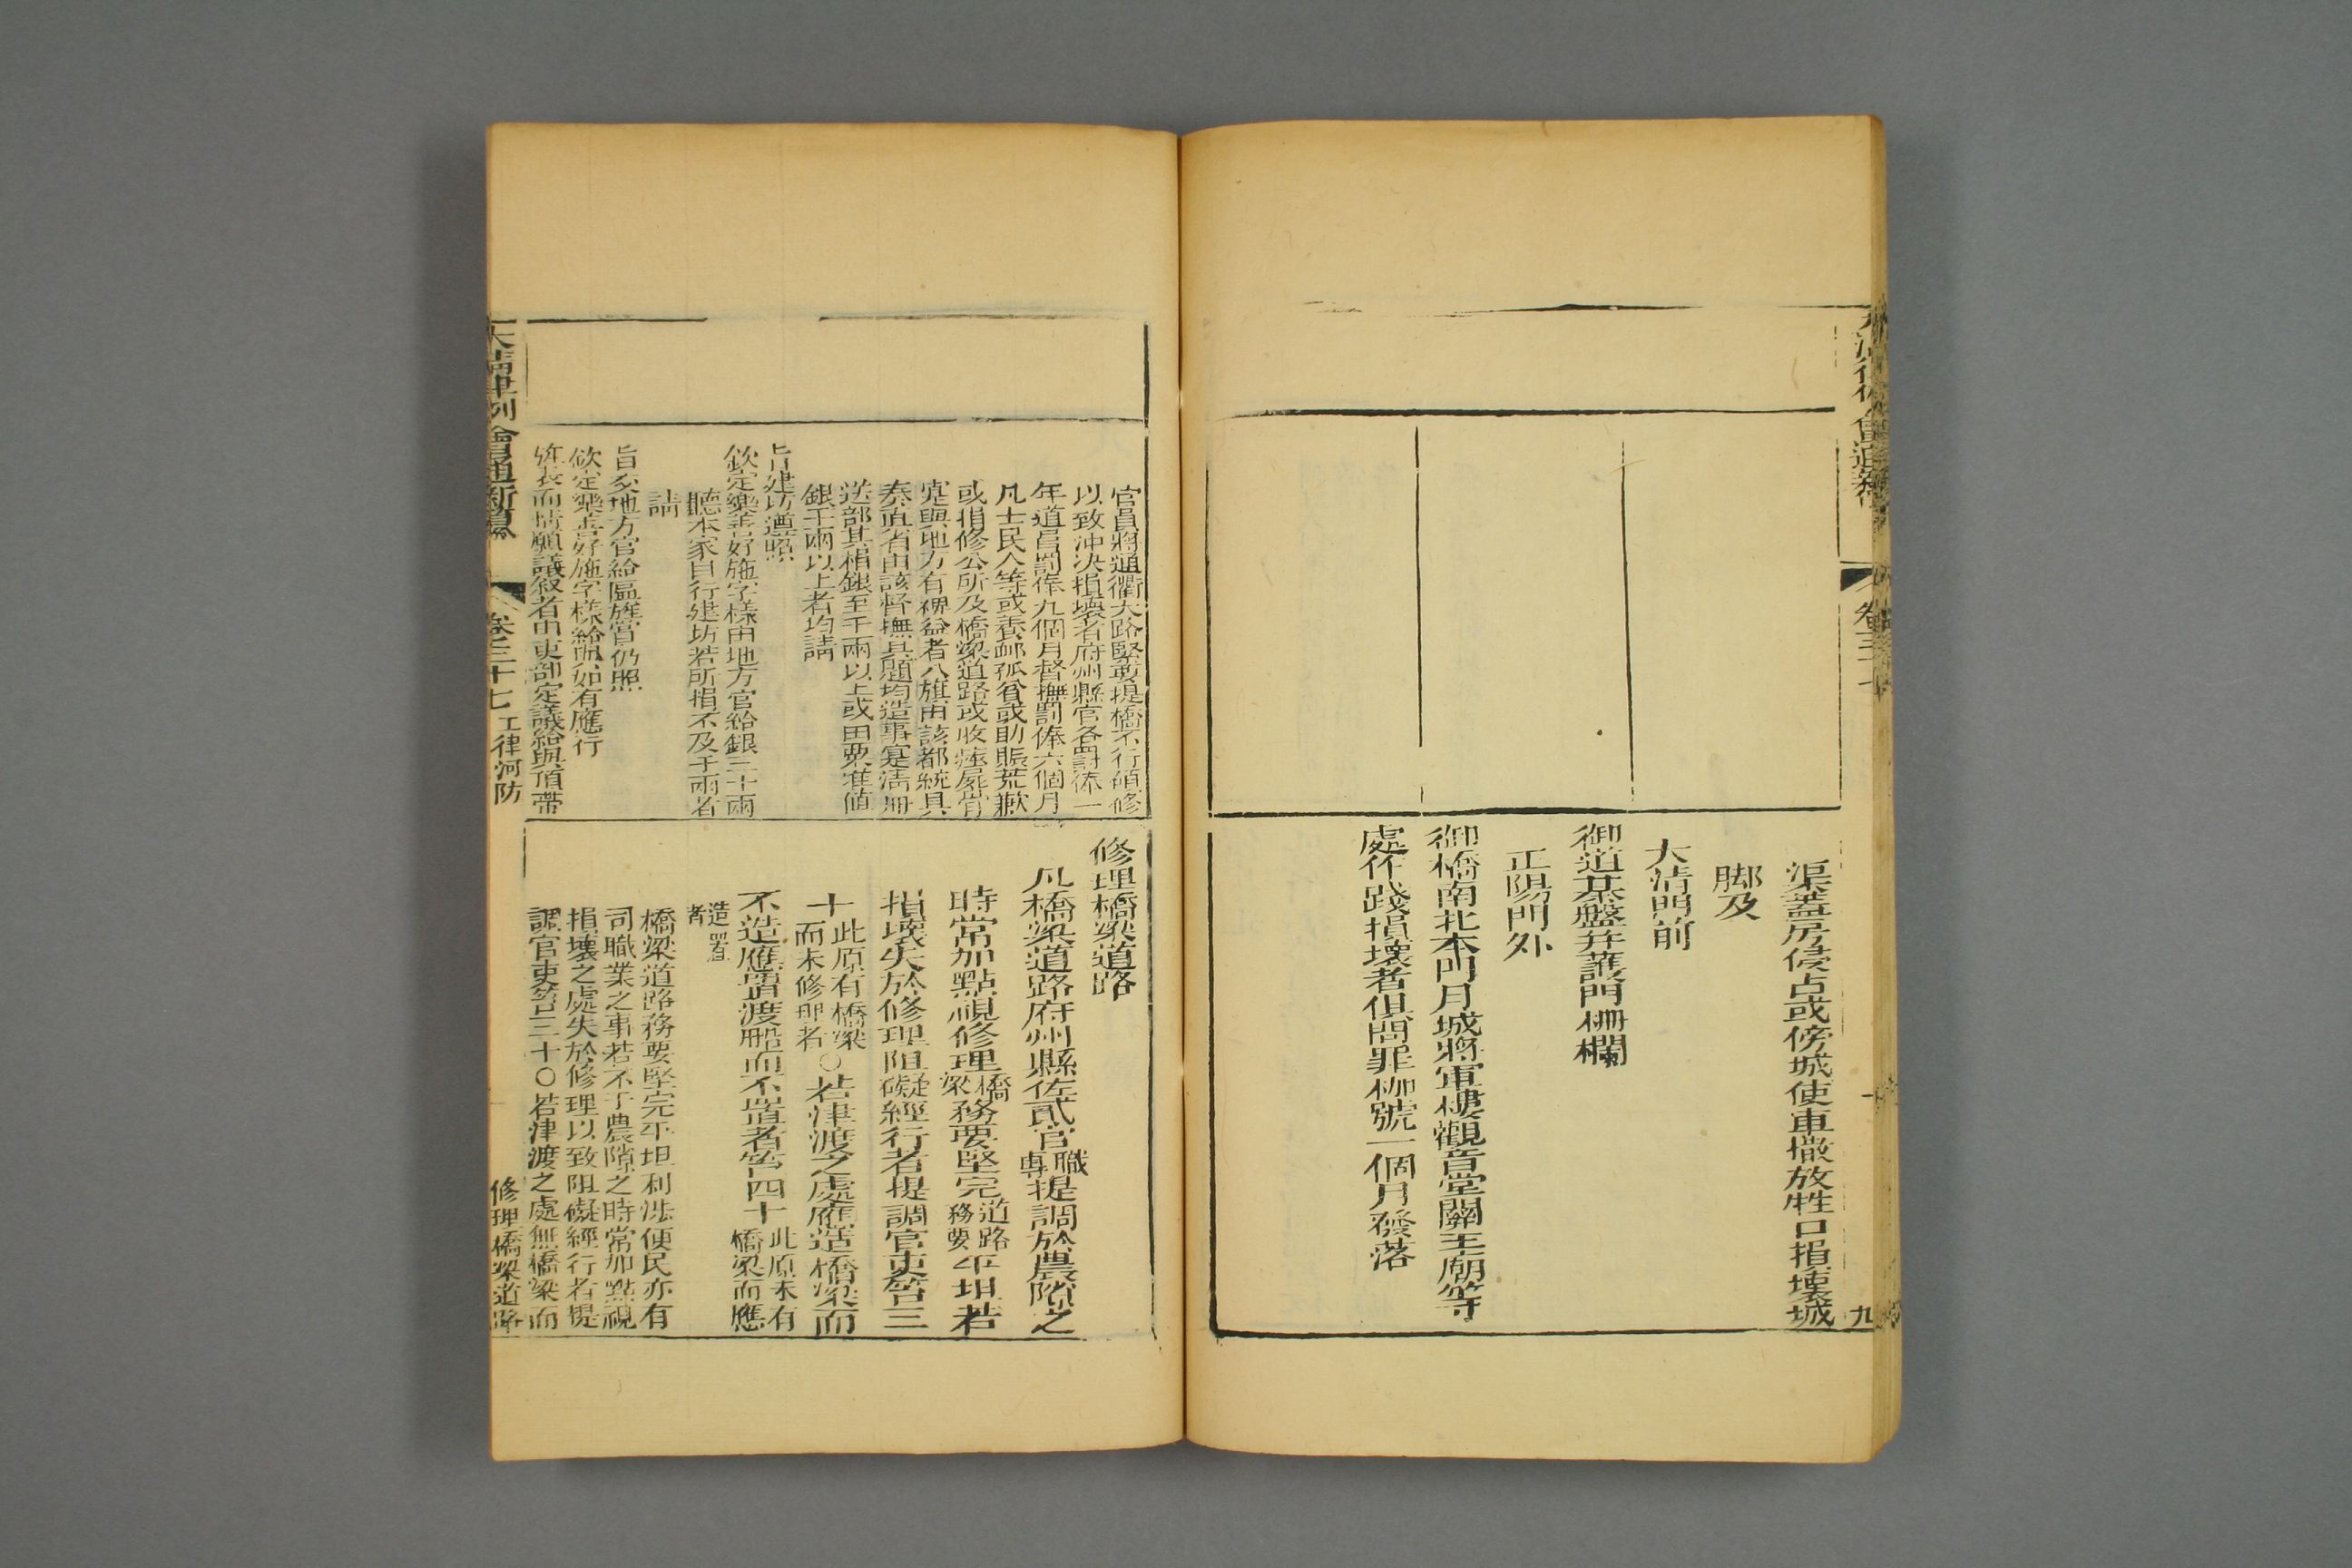 渠蓋房侵占或傍城使車撒放牲口損壞城
脚及
大清門前
御道棊盤并護門柵欄
正陽門外
御橋南北本門月城將軍樓觀音堂關王廟等
處作踐損壞者俱問罪枷號一個月發落
卷三十七
九
官員將通衢大路緊要堤橋不行預修
以致冲决損壞者府州縣官各罰俸一
年道員罰俸九個月督撫罰俸六個月
凡士民人等或養邮孤貧或助賑荒歉
或捐修公所及橋梁道路或收瘞屍骨
寔與地方有裨益者八旗由該都統具
奏直省由該督撫具題均造事寔清册
送部其捐銀至千兩以上或田粟准值
銀千兩以上者均請
旨建坊遵照
欽定樂善好施字樣由地方官給銀三十兩
聽本家自行建坊若所捐不及千兩者
請
旨交地方官給匾旌賞仍照
欽定樂善好施字樣給與如有應行
旌表而情願議叙者由吏部定議給與頂帶
修理橋梁道路
凡橋梁道路府州縣佐貳官職專提調於農隙之
時常加點視修理橋梁務要堅完道路務要平坦若
損壞失於修理阻礙經行者提調官吏笞三
十此原有橋梁而未修理者○若津渡之處應造橋梁而
不造應置渡船而不置者笞四十此原未有橋梁而應
造置者
橋梁道路務要堅完平坦利涉便民亦有
司職業之事若不于農隙之時常加點視
損壞之處失於修理以致阻礙經行者提
調官吏笞三十○若津渡之處無橋梁而
大清律例會通新纂
卷三十七
工律河防
修理橋梁道路